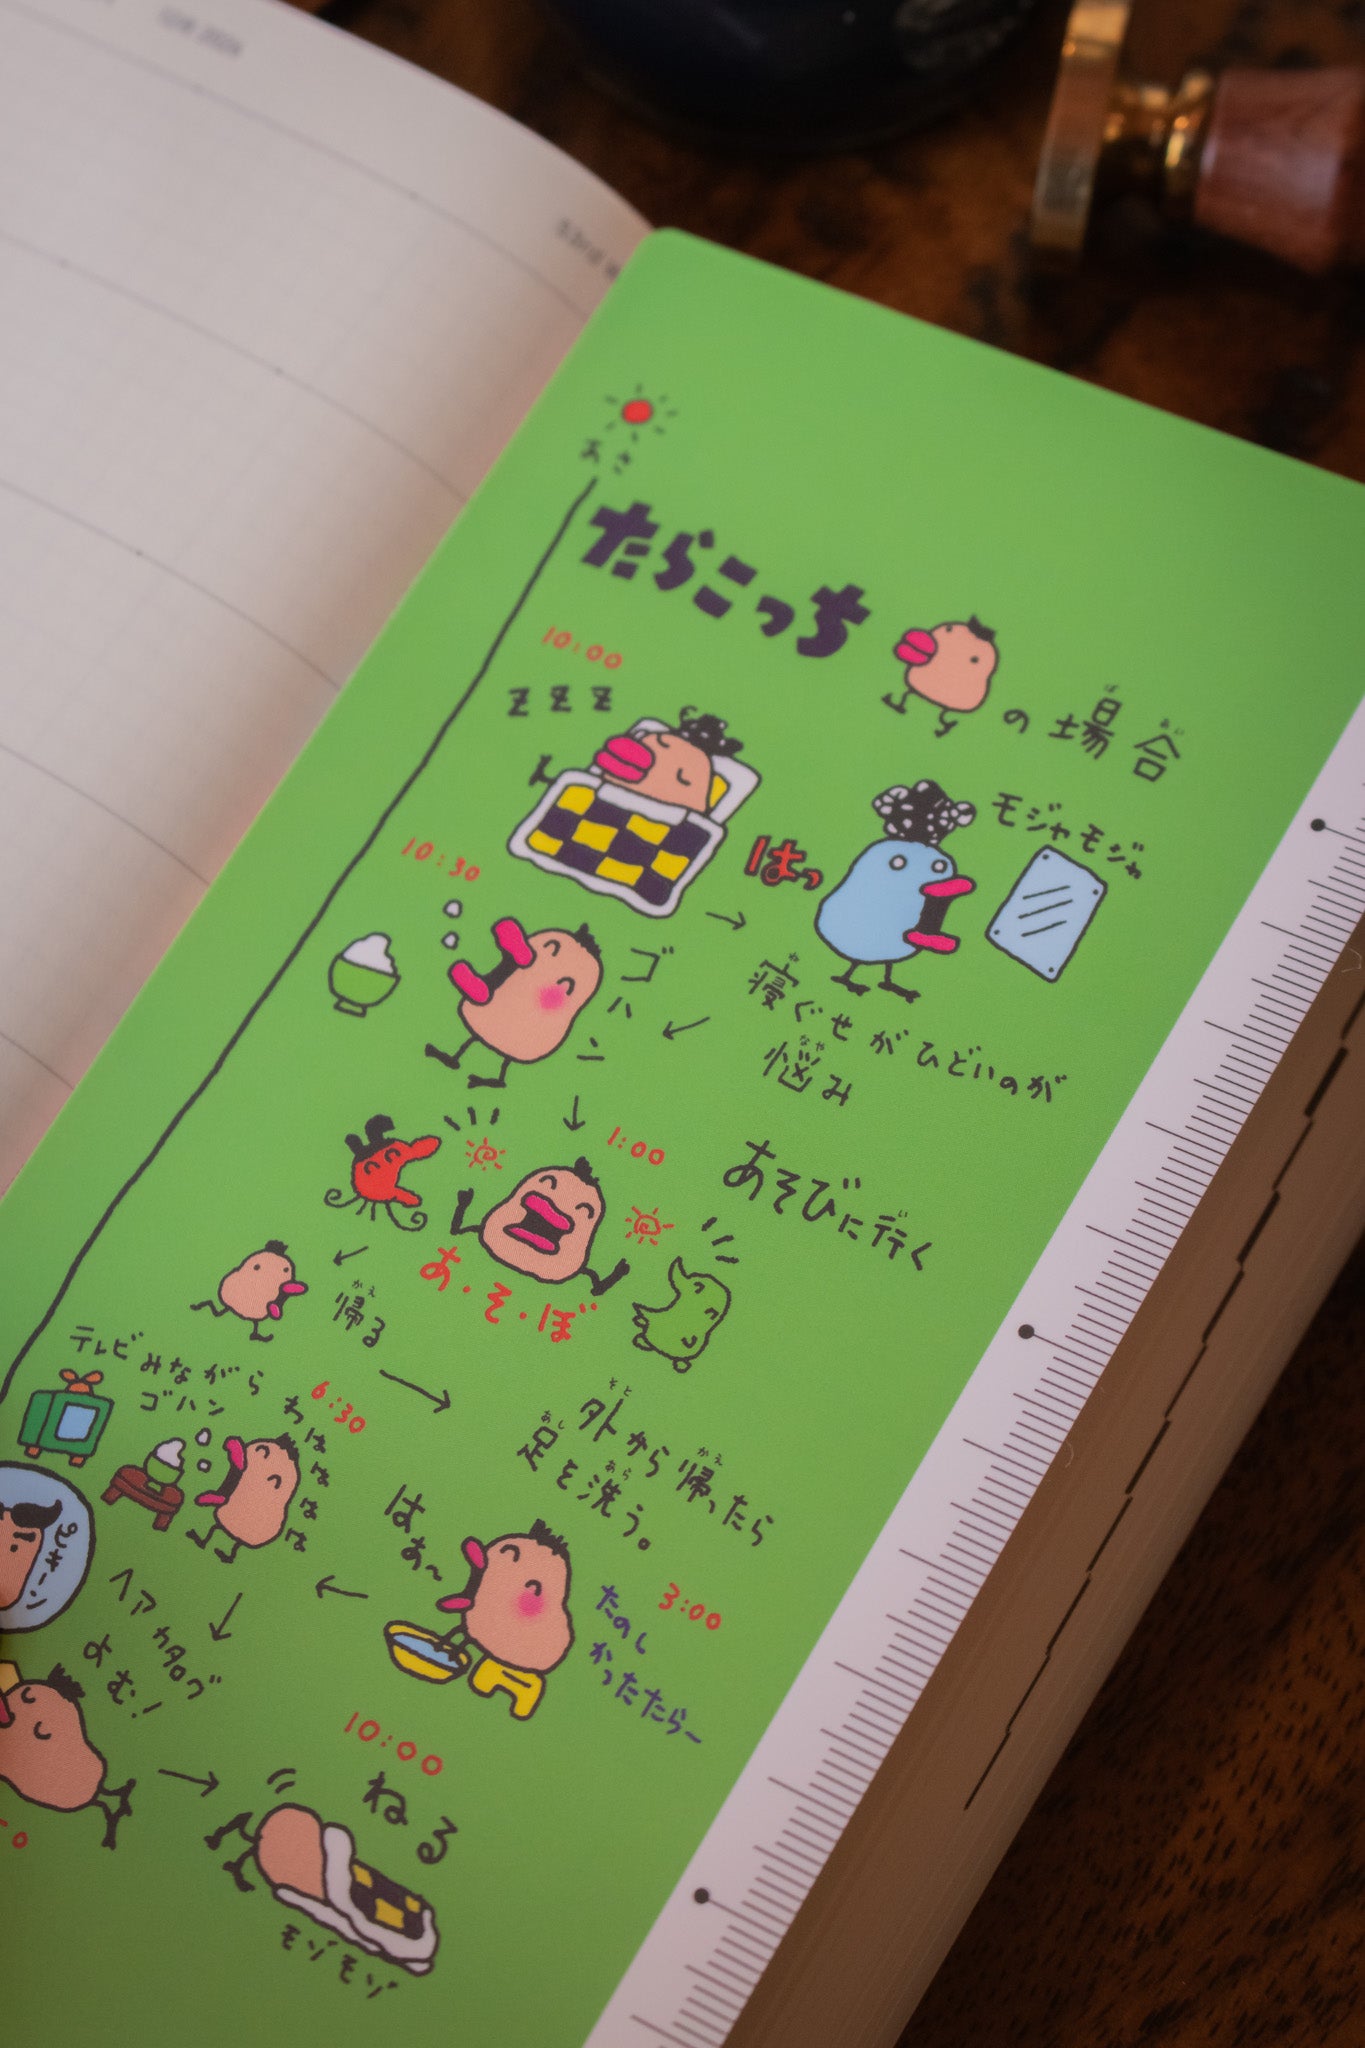 あさ
たらこっち
の場合
ばあい
10:00
z z z
はっ
モジャモジャ
寝ぐせがひどいのが
ね
悩み
なや
10:30
ゴハン
1:00
あそびに行く
い
あ・そ・ぼ
帰る
かえ
外から帰ったら
そと
かえ
足を洗う。
あし
あら
3:00
はぁ~
たのし
かったたら~
6:30
テレビみながら
ゴハン
わはははは
ヘアカタログ
よむ!
10:00
ねる
モゾモゾ